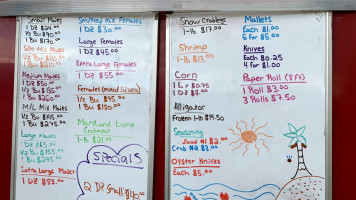 Small Males
1 DZ $40.00
1/2 Bu $90
1 Bu $170
S/M Mix Males
1/2 Bu $110
1 Bu $210
Medium Males
1 DZ $55
1/2 $135
1 Bu $260
M/L Mix Males
1 DZ
1/2 Bu
1 Bu
Large Males
1 DZ $75
1/2 Bu $155
1 Bu $295
Extra Large Males
1 DZ $85
Sm/Med Mix Females
1 DZ $30.00
Large Females
1 DZ $45
Extra Large Females
1 DZ $55
Females (mixed Sizes)
1/2 Bu $95
1 Bu $180
Maryland Lump
Crabmeat
1-lb $21
Specials
2 DZ Small $70.00
Snow Crablegs
1-lb $17.00
Shrimp
1-lb $13.00
Corn
1 Ear $0.75
1 DZ $5.00
Alligator
Frozen 1-lb $9.50
Seasoning
Crab #2 $3.00
Oyster Knives
Each $5.00
Mallets
Each $1.00
6 For $5.00
Knives
Each $0.25
4 For $1.00
Paper Roll
1 Roll $3.00
3 Rolls $7.50